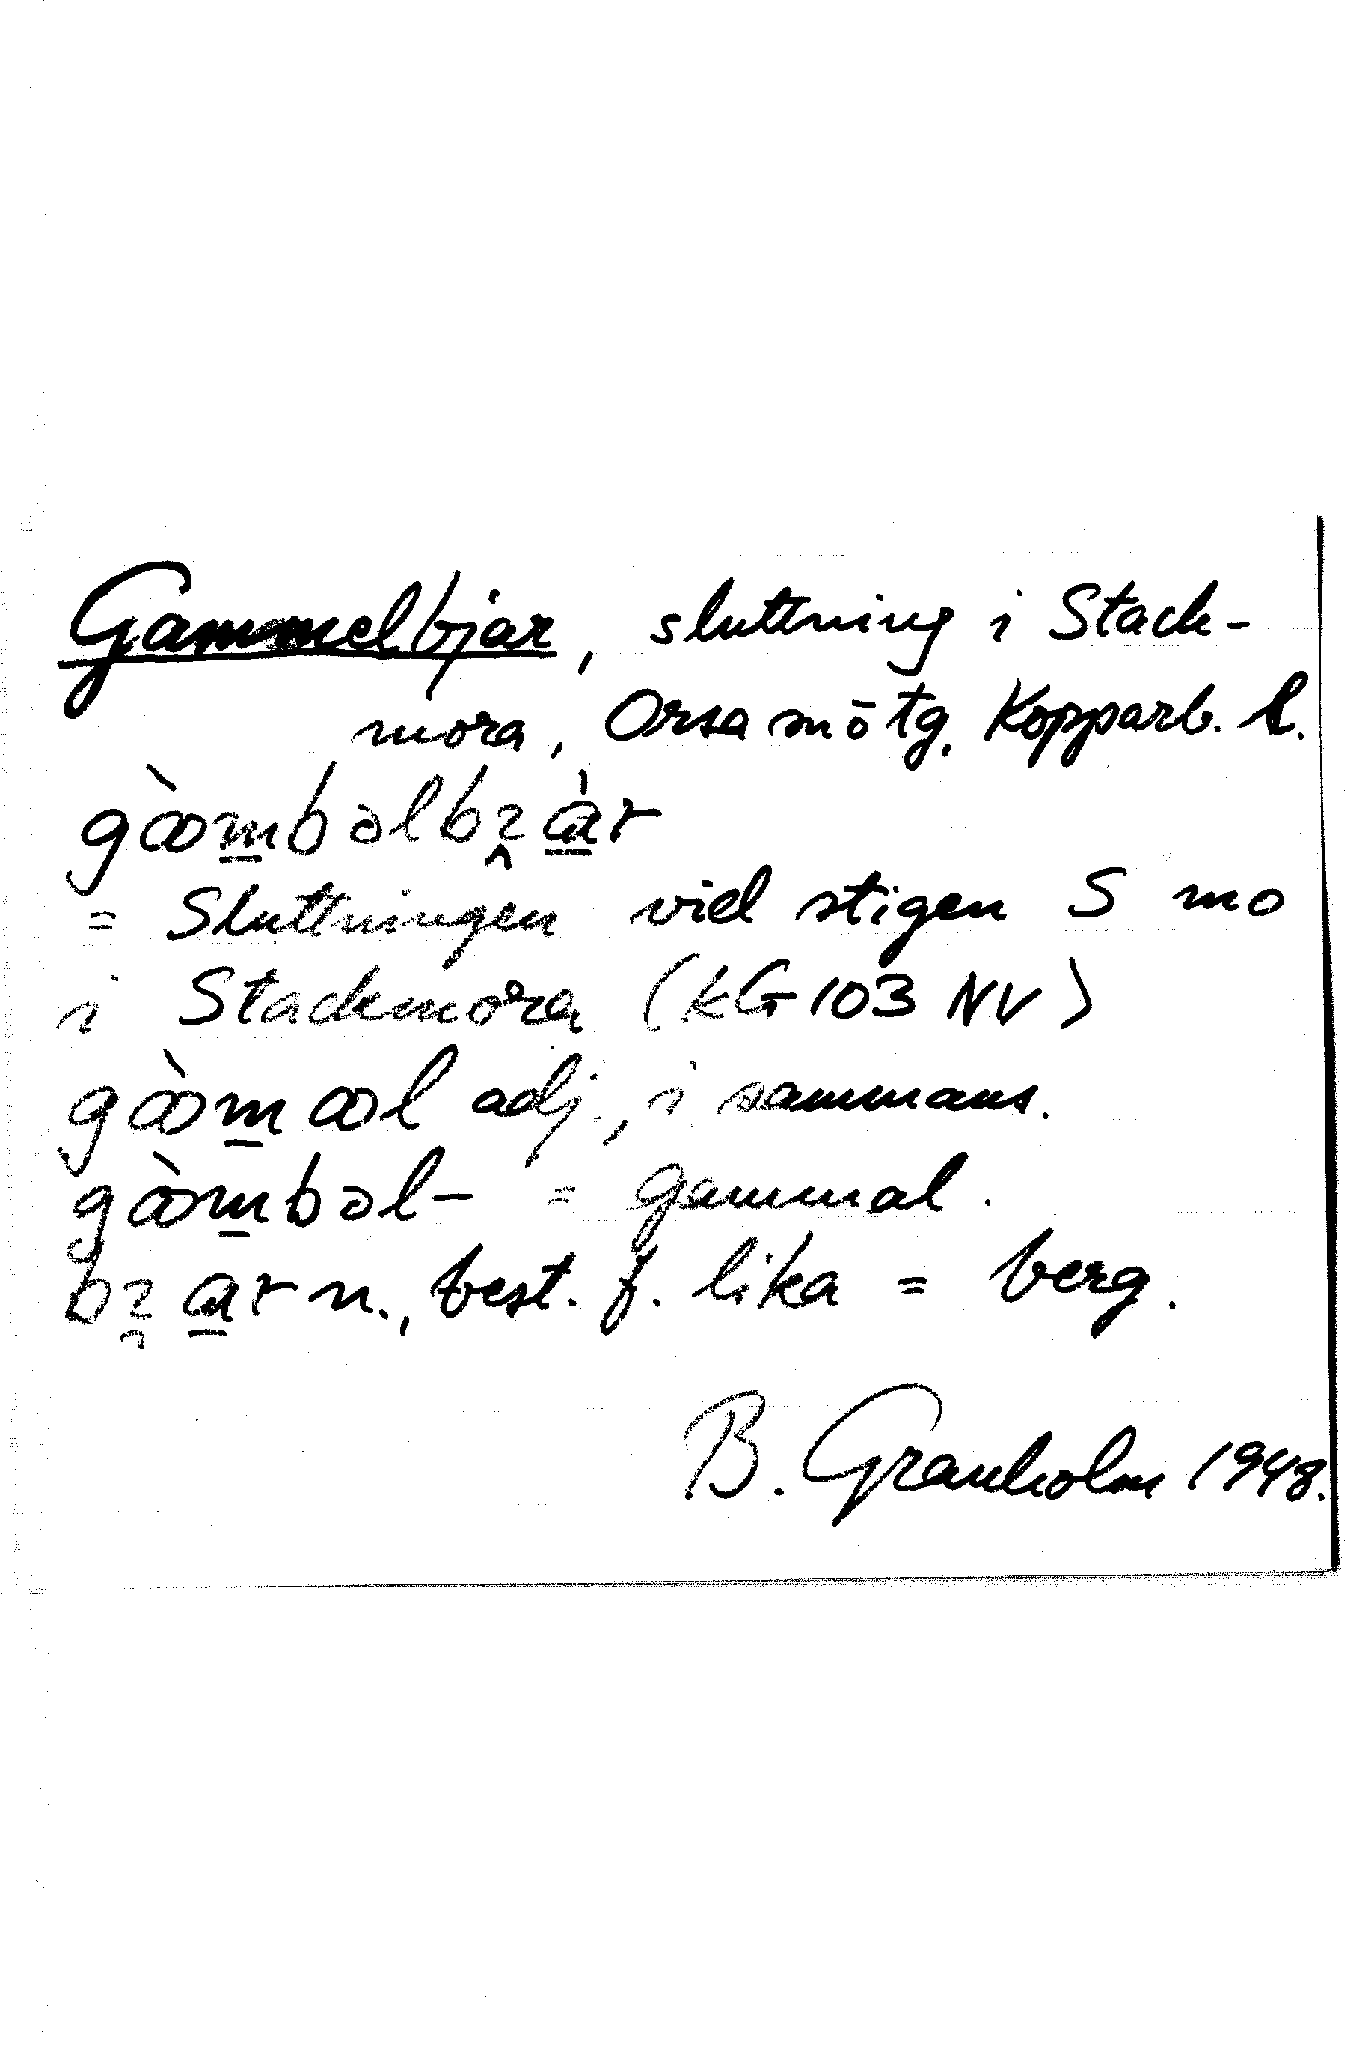 Gammelbjar, sluttning i Stack-
mora, Orsa sn ö tg. Kopparb. l.
= Sluttningen vid stigen S mo
i Stackmora (KG 103 NV)
adj., i sammans.
= gammal.
n., best. f. lika = berg.
B. Granholm 1948.